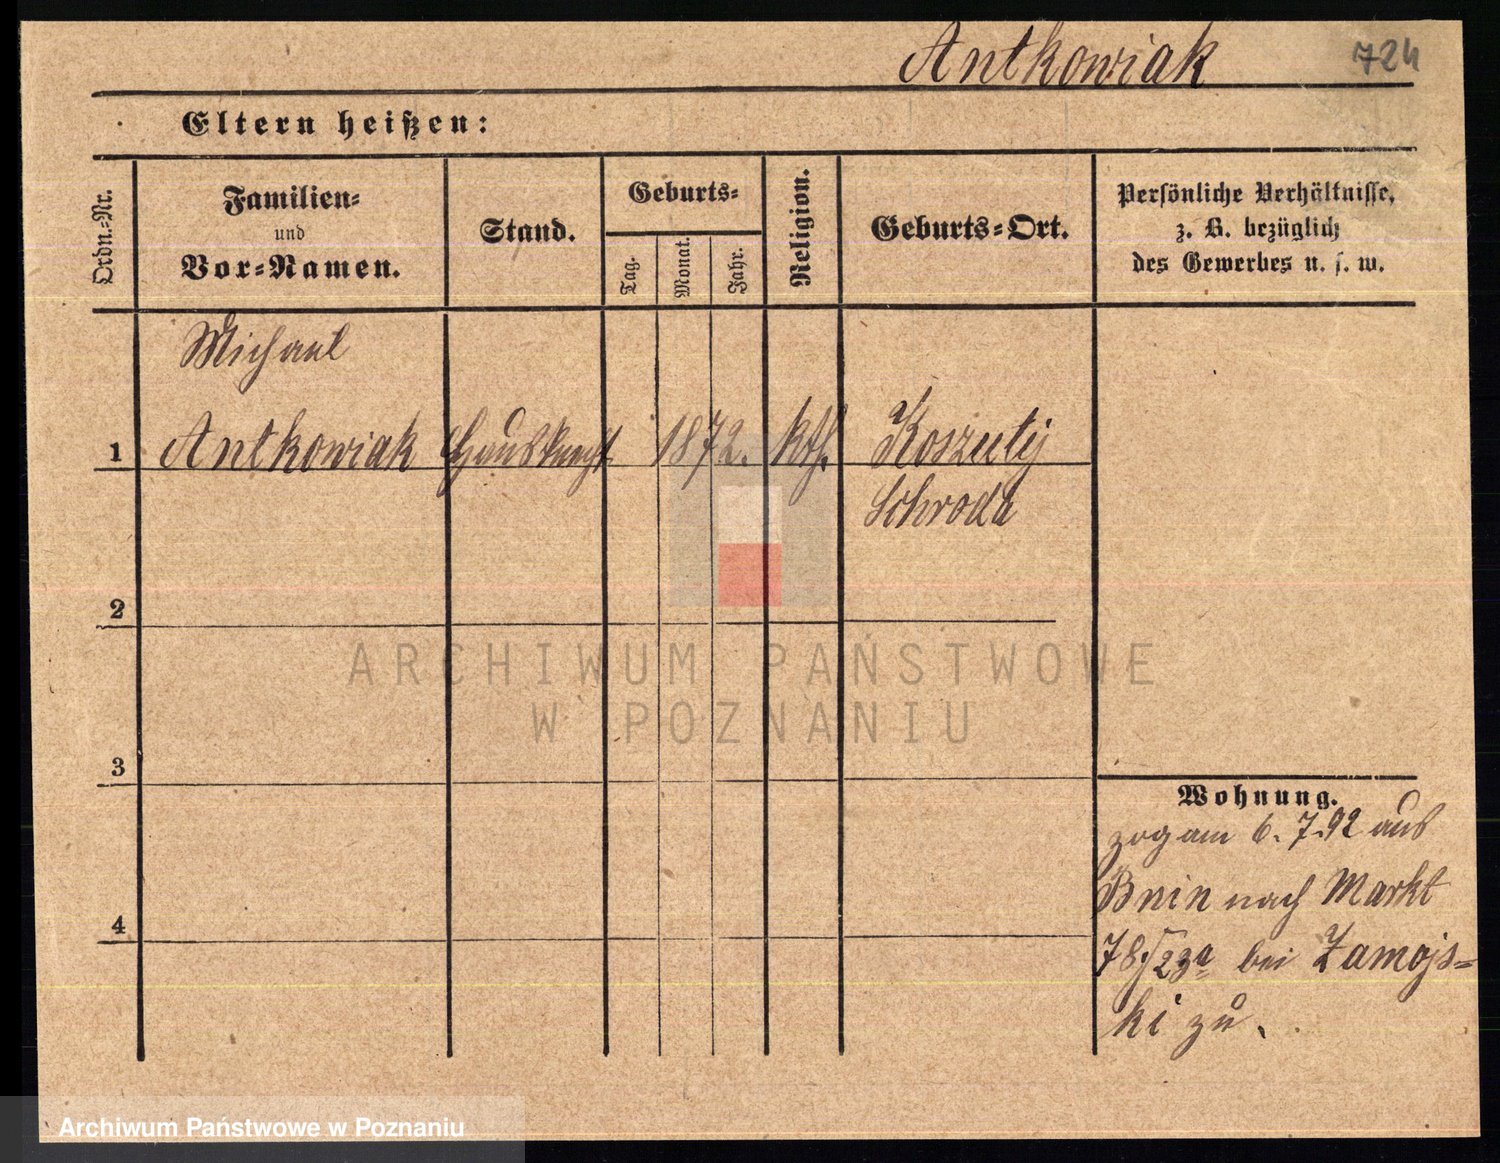 Antkowiak 724
Eltern heißen:
Ordn.-Nr.
Familien-
und
Vor-Namen.
Stand.
Geburts-
Tag.
Monat.
Jahr.
Religion.
Geburts-Ort.
Persönliche Verhältnisse,
z. B. bezüglich
des Gewerbes u. s. w.
Michael
1 Antkowiak Hausknecht 1872. kth. Koszuty
Schroda
2
3
4
Wohnung.
zog am 6. 7. 92 aus
Bnin nach Markt
78/23a bei Zamojs-
ki zu.
ARCHIWUM PAŃSTWOWE
W POZNANIU
Archiwum Państwowe w Poznaniu